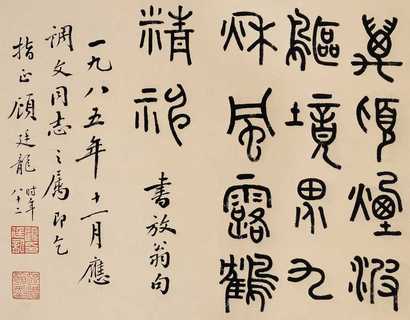 萬頃煙波
鷗境界九
秌風露鶴
精神
書放翁句
一九八五年十一月應
調文同志之属即乞
指正顧廷龍时年八十二